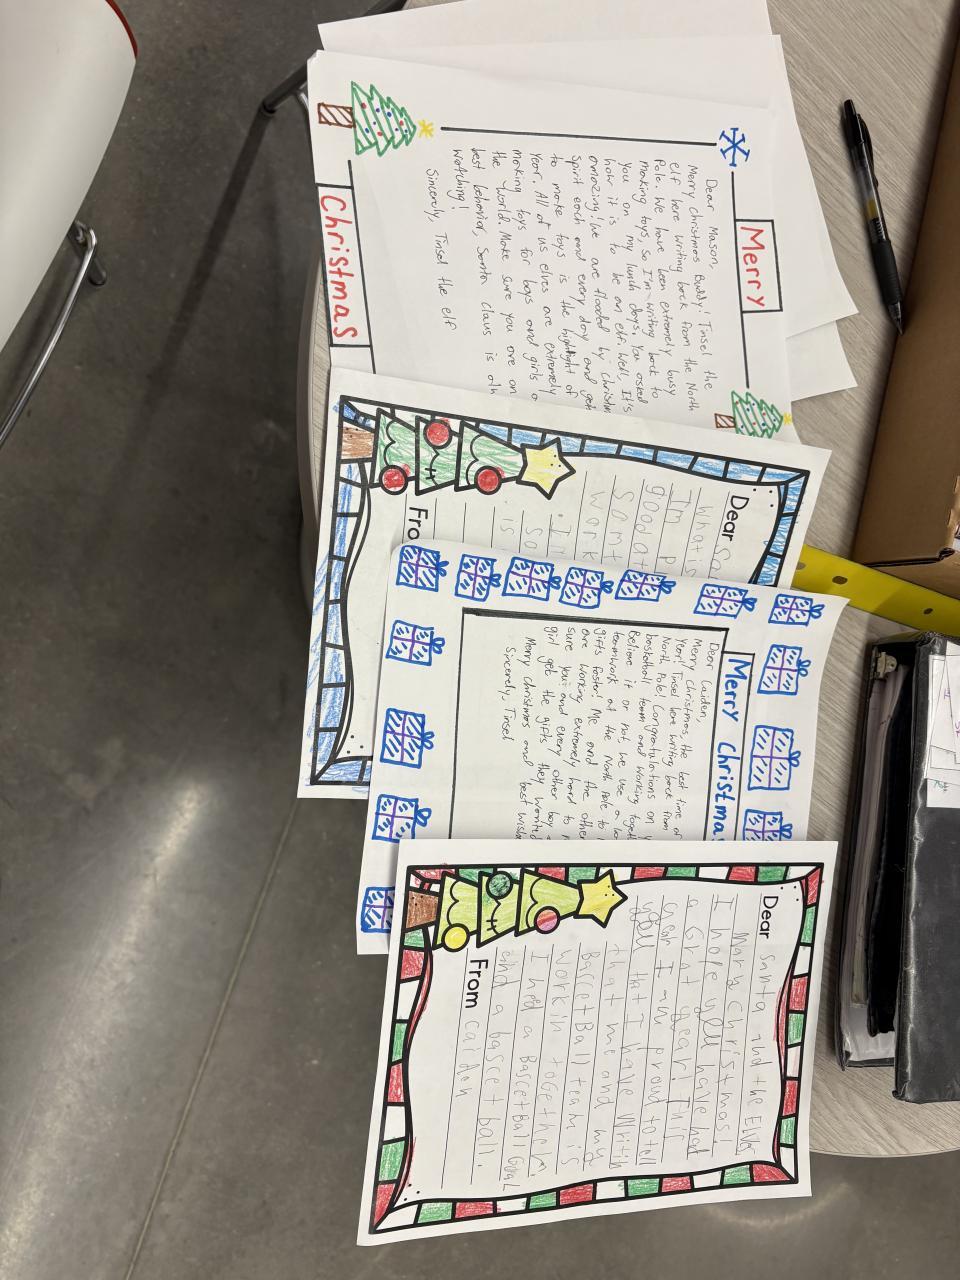 Merry
Dear Mason,
Merry Christmas Buddy! Tinsel the
elf here writing back from the North
Pole. We have been extremely busy
making toys, so I'm writing back to
you on my lunch days. You asked
how it is to be an elf. Well, It's
amazing! We are flooded by Christm
spirit each and every day and get
to make toys is the highlight of
year. All of us elves are extremely
making toys for boys and girls
the world. Make sure you are on
best behavior, Santa claus is
watching!
Sincerely, Tinsel the elf
Christmas
Dear
what is
I'm
good at
Somt
work
is
Fro
Merry Christma
Dear Caiden,
Merry Christmas, the best time of
Year! Tinsel here writing back from
North Pole! Congratulations on y
basketball team and working toget
Believe it or not we use a lo
teamwork at the North Pole to
gifts faster! Me and the other
are working extremely hard to
sure you and every other boy
girl get the gifts they wanted
Merry christmas and best wish
Sincerely, Tinsel
Dear Santa and the Elves
Mary Christmas!
I hope you have had
a Grat year! This
year I am pround to tell
you that I have Writin
that me and my
Basce+Ball team is
workin toGether.
I hed a Basce+Ball Goal
and a basce+ball.
From caiden